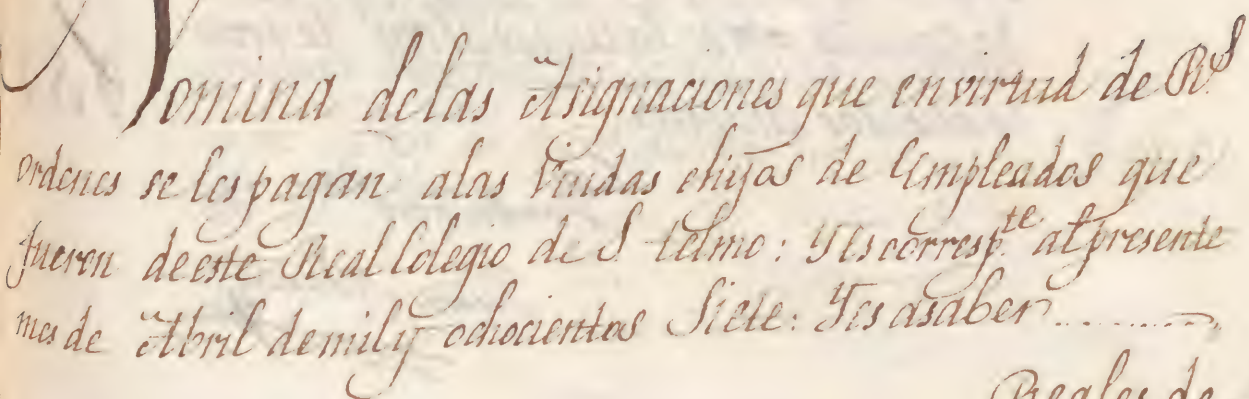 Nomina delas Asignaciones que en virtud de Rs
ordenes se les pagan alas Viudas ehijos de Empleados que
fueron deeste Real Colegio de S. telmo: Yes corresp.te al presente
mes de Abril demil y ochocientos Siete: Yes asaber.........
Reales de